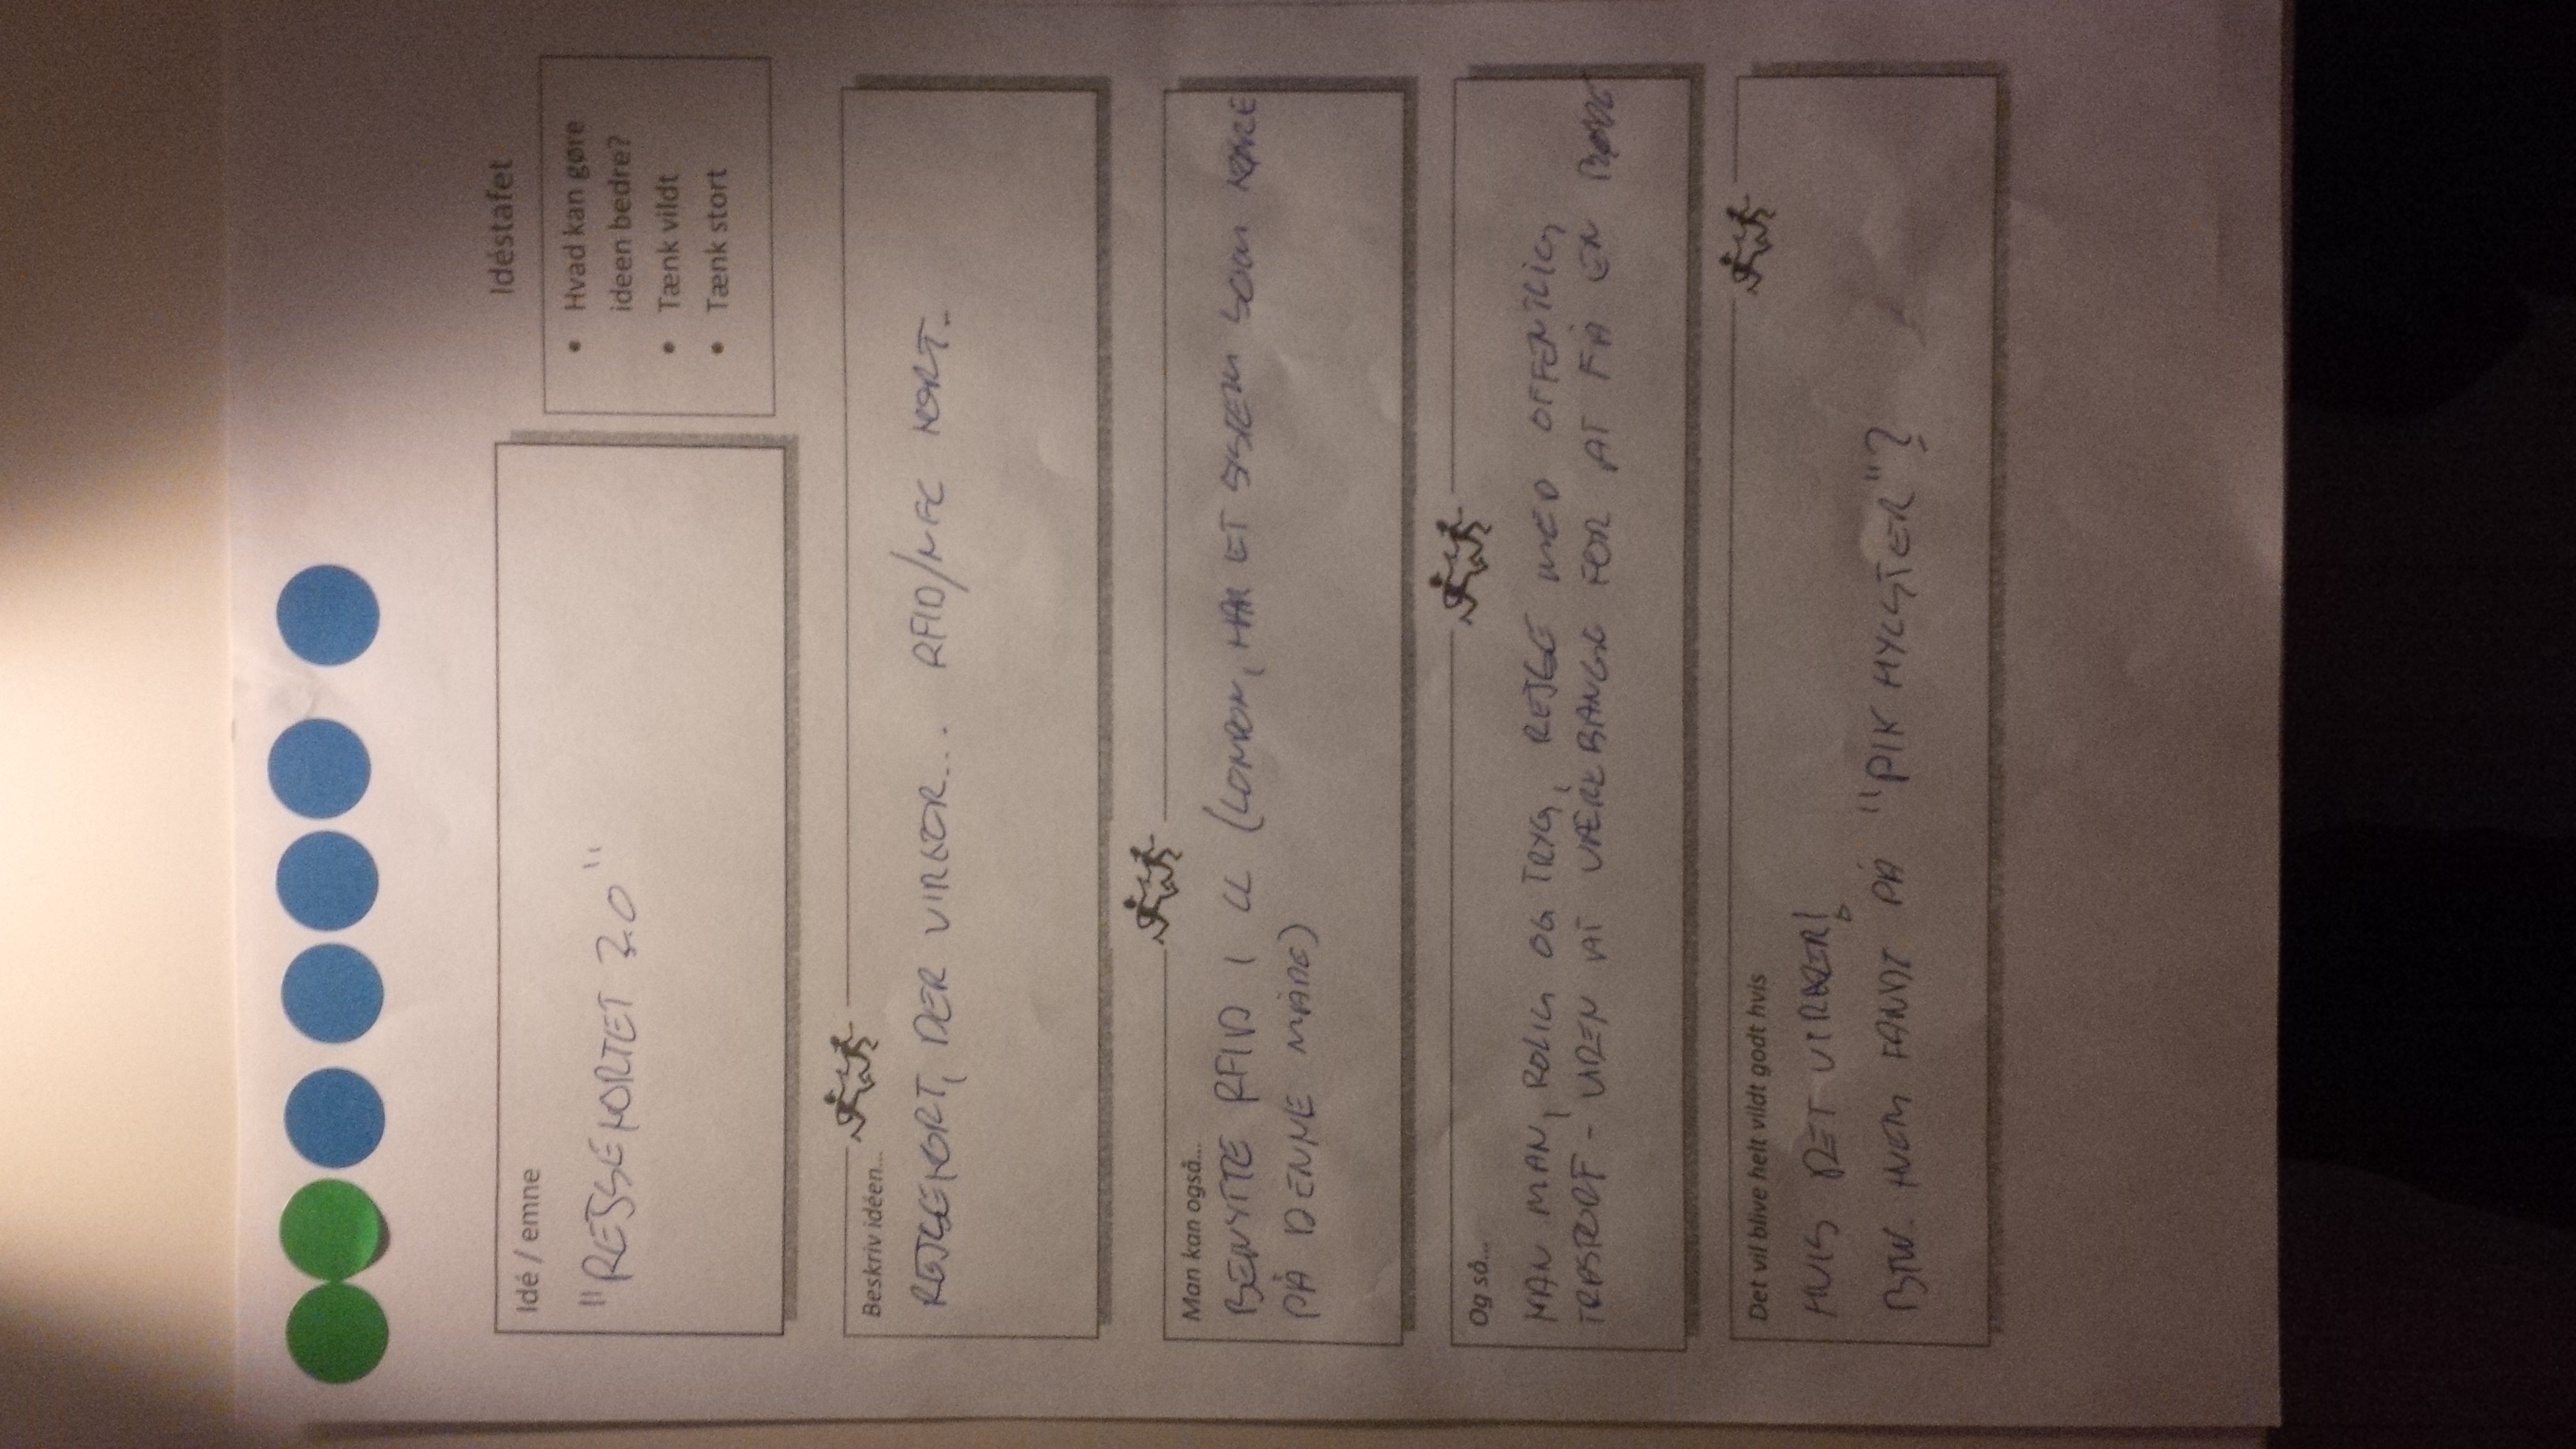 Idé / emne
"REJSEKORTET 2.0"
Idéstafet
• Hvad kan gøre
ideen bedre?
• Tænk vildt
• Tænk stort
Beskriv idéen...
REJSEKORT, DER VIRKER... RFID/NFC KORT.
Man kan også...
BENYTTE RFID I (LONDON, HAR ET SYSTEM SOM KØRE
PÅ DENNE MÅDE)
Og så...
KAN MAN, ROLIG OG TRYG, REJSE MED OFFENTLIG
- UDEN AT VÆRE BANGE FOR AT FÅ EN BØDE
Det vil blive helt vildt godt hvis
HVIS DET VIRKER!
BTW. HVEM FANDT PÅ "PIK HYLSTER"?